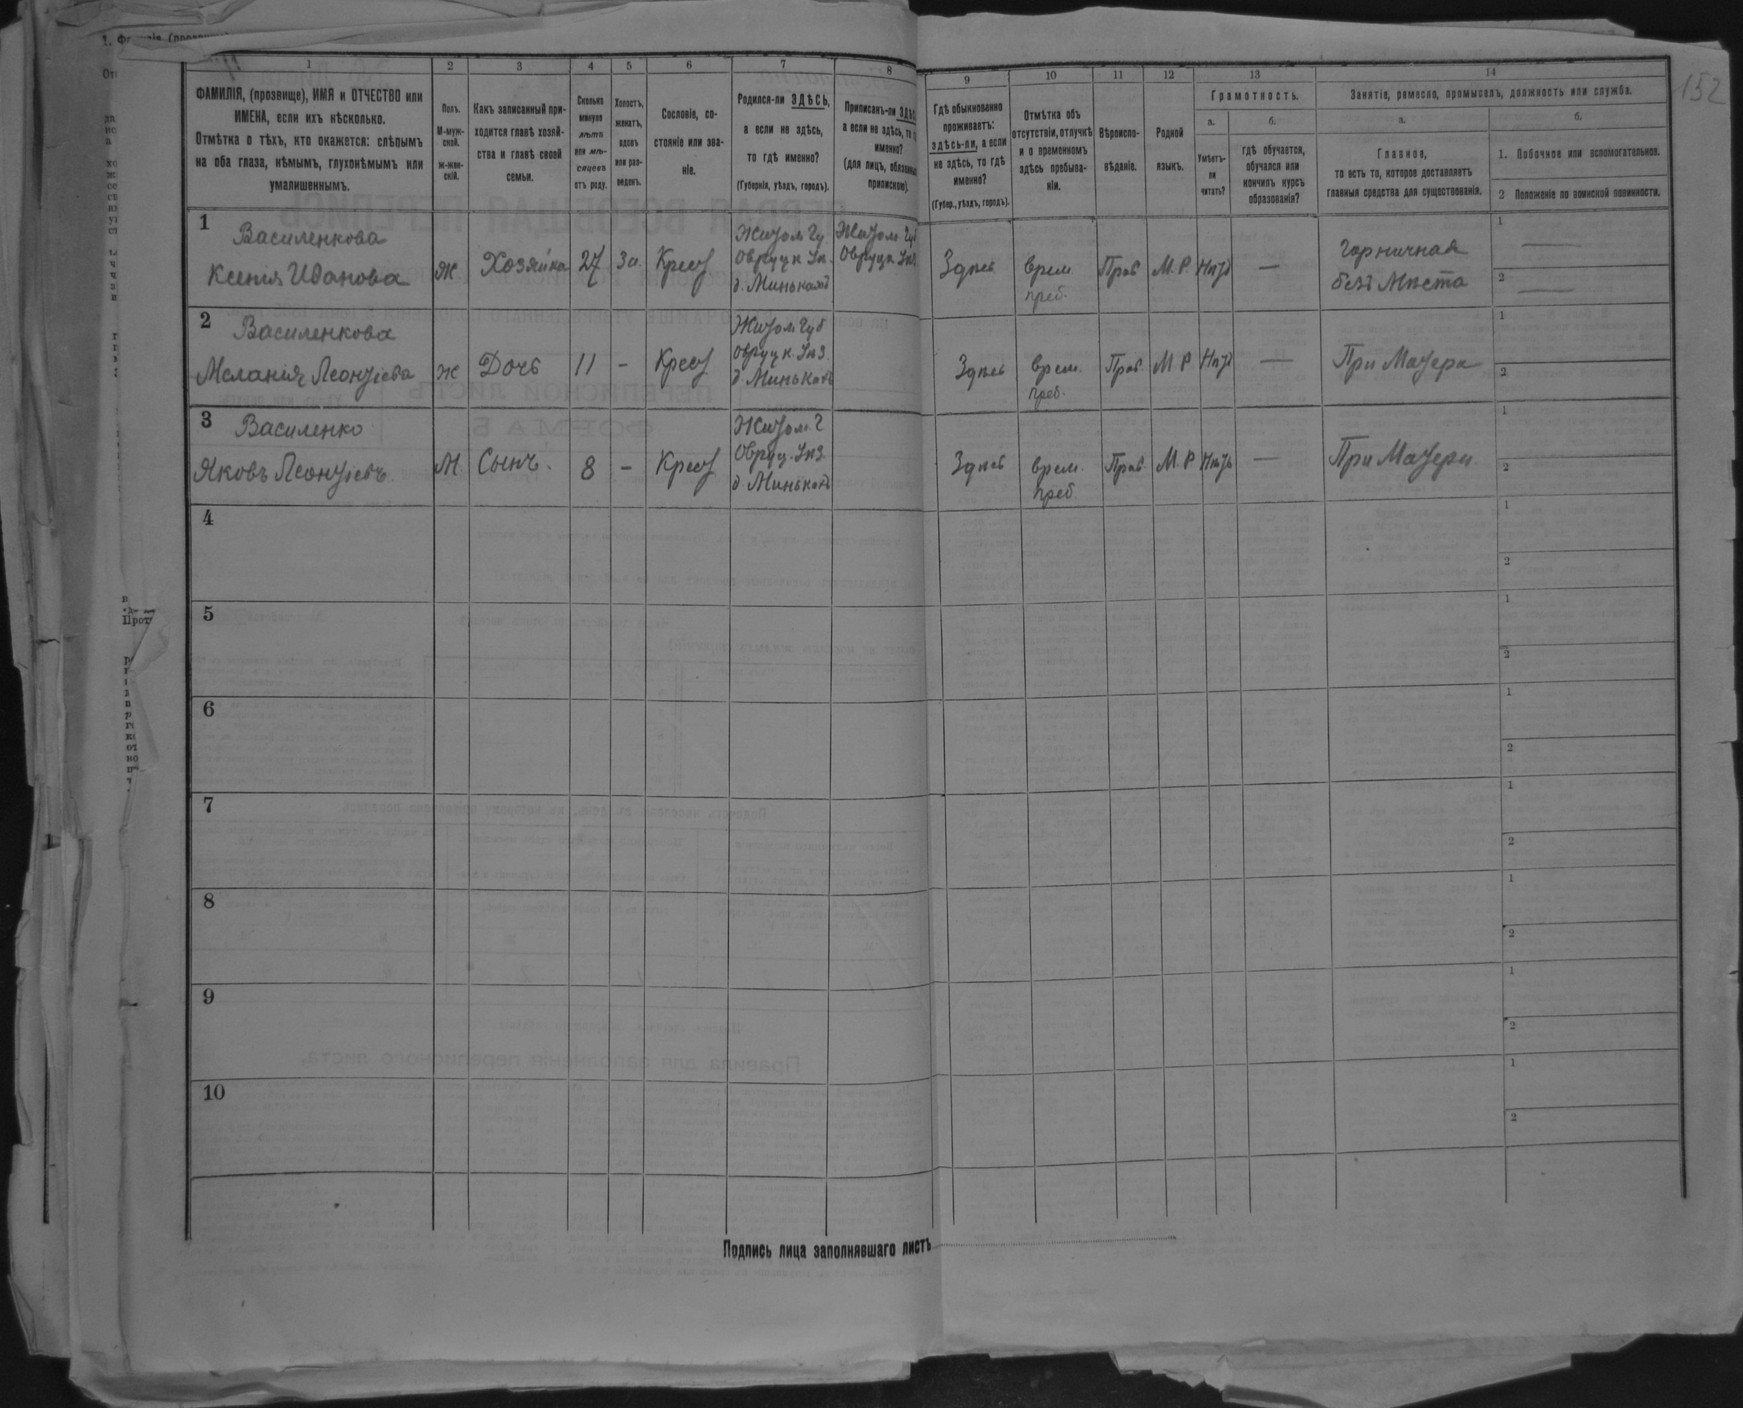 152
1 2 3 4 5 6 7 8 9 10 11 12 13 14
ФАМИЛІЯ, (прозвище), ИМЯ и ОТЧЕСТВО или
ИМЕНА, если ихъ нѣсколько.
Отмѣтка о тѣхъ, кто окажется: слѣпымъ
на оба глаза, нѣмымъ, глухонѣмымъ или
умалишеннымъ.
Полъ.
М-муж-
ской.
Ж-жен-
скій.
Какъ записанный при-
ходится главѣ хозяй-
ства и главѣ своей
семьи.
Сколько
минуло
лѣтъ
или мѣ-
сяцевъ
отъ роду.
Холостъ,
женатъ,
вдовъ
или раз-
веденъ.
Сословіе, со-
стояніе или зва-
ніе.
Родился-ли ЗДѢСЬ,
а если не здѣсь,
то гдѣ именно?
(Губернія, уѣздъ, городъ).
Приписанъ-ли ЗДѢС
а если не здѣсь, то г
именно?
(для лицъ, обязанны
припискою).
Гдѣ обыкновенно
проживаетъ:
здѣсь-ли, а если
не здѣсь, то гдѣ
именно?
(Губер., уѣздъ, городъ).
Отмѣтка объ
отсутствіи, отлучкѣ
и о временномъ
здѣсь пребыва-
ніи.
Вѣроиспо-
вѣданіе.
Родной
языкъ.
Грамотность.
а. б.
Умѣетъ-
ли
читать?
гдѣ обучается,
обучался или
кончилъ курсъ
образованія?
Занятіе, ремесло, промыселъ, должность или служба.
а. б.
Главное,
то есть то, которое доставляетъ
главныя средства для существованія.
1. Побочное или вспомогательное.
2 Положеніе по воинской повинности.
1 Василенкова
Ксенія Иванова
ж Хозяйка 27 За. Крест
Житом Гу.
Овруцк Уѣ.
д. Миньковд
Житом. Губ
Овруцк Уѣз
Здѣсь
врем.
преб.
Прав М.Р. Нѣтъ —
Горничная
безъ Мѣста
1 —
2 —
2 Василенкова
Меланія Леонтіева
ж Дочь 11 - Крест
Житом Губ
Овруцк. Уѣз.
д. Миньков
Здѣсь
врем.
преб.
Прав. М Р Нѣтъ —
При Матери
1
2
3 Василенко
Яковъ Леонтіевъ
М Сынъ. 8 - Крест
Житом. Г
Овруц. Уѣз.
д Миньков
Здѣсь
врем.
преб
Прав. М.Р Нѣтъ —
При Матери
1
2
4
1
2
5
1
2
6
1
2
7
1
2
8
1
2
9
1
2
10
1
2
Подпись лица заполнявшаго листъ